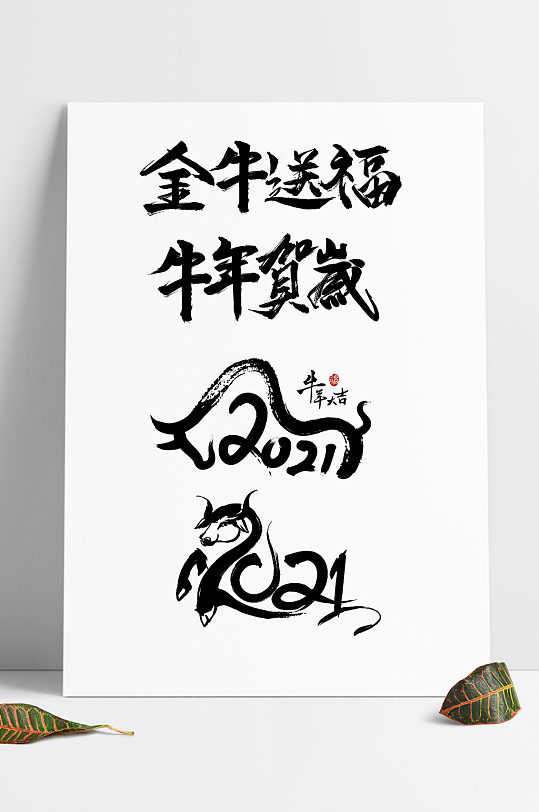 金牛送福
牛年賀歲
牛年大吉
福
2021
2021